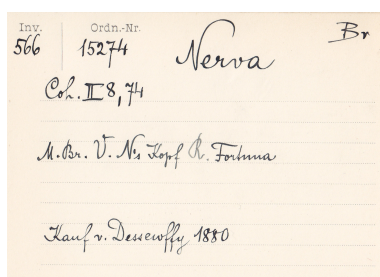 Inv. Ordn.-Nr. Br
566 15274 Nerva
Coh. II 8, 74
M. Br. V. N's Kopf R. Fortuna
Kauf v. Dessewffy 1880